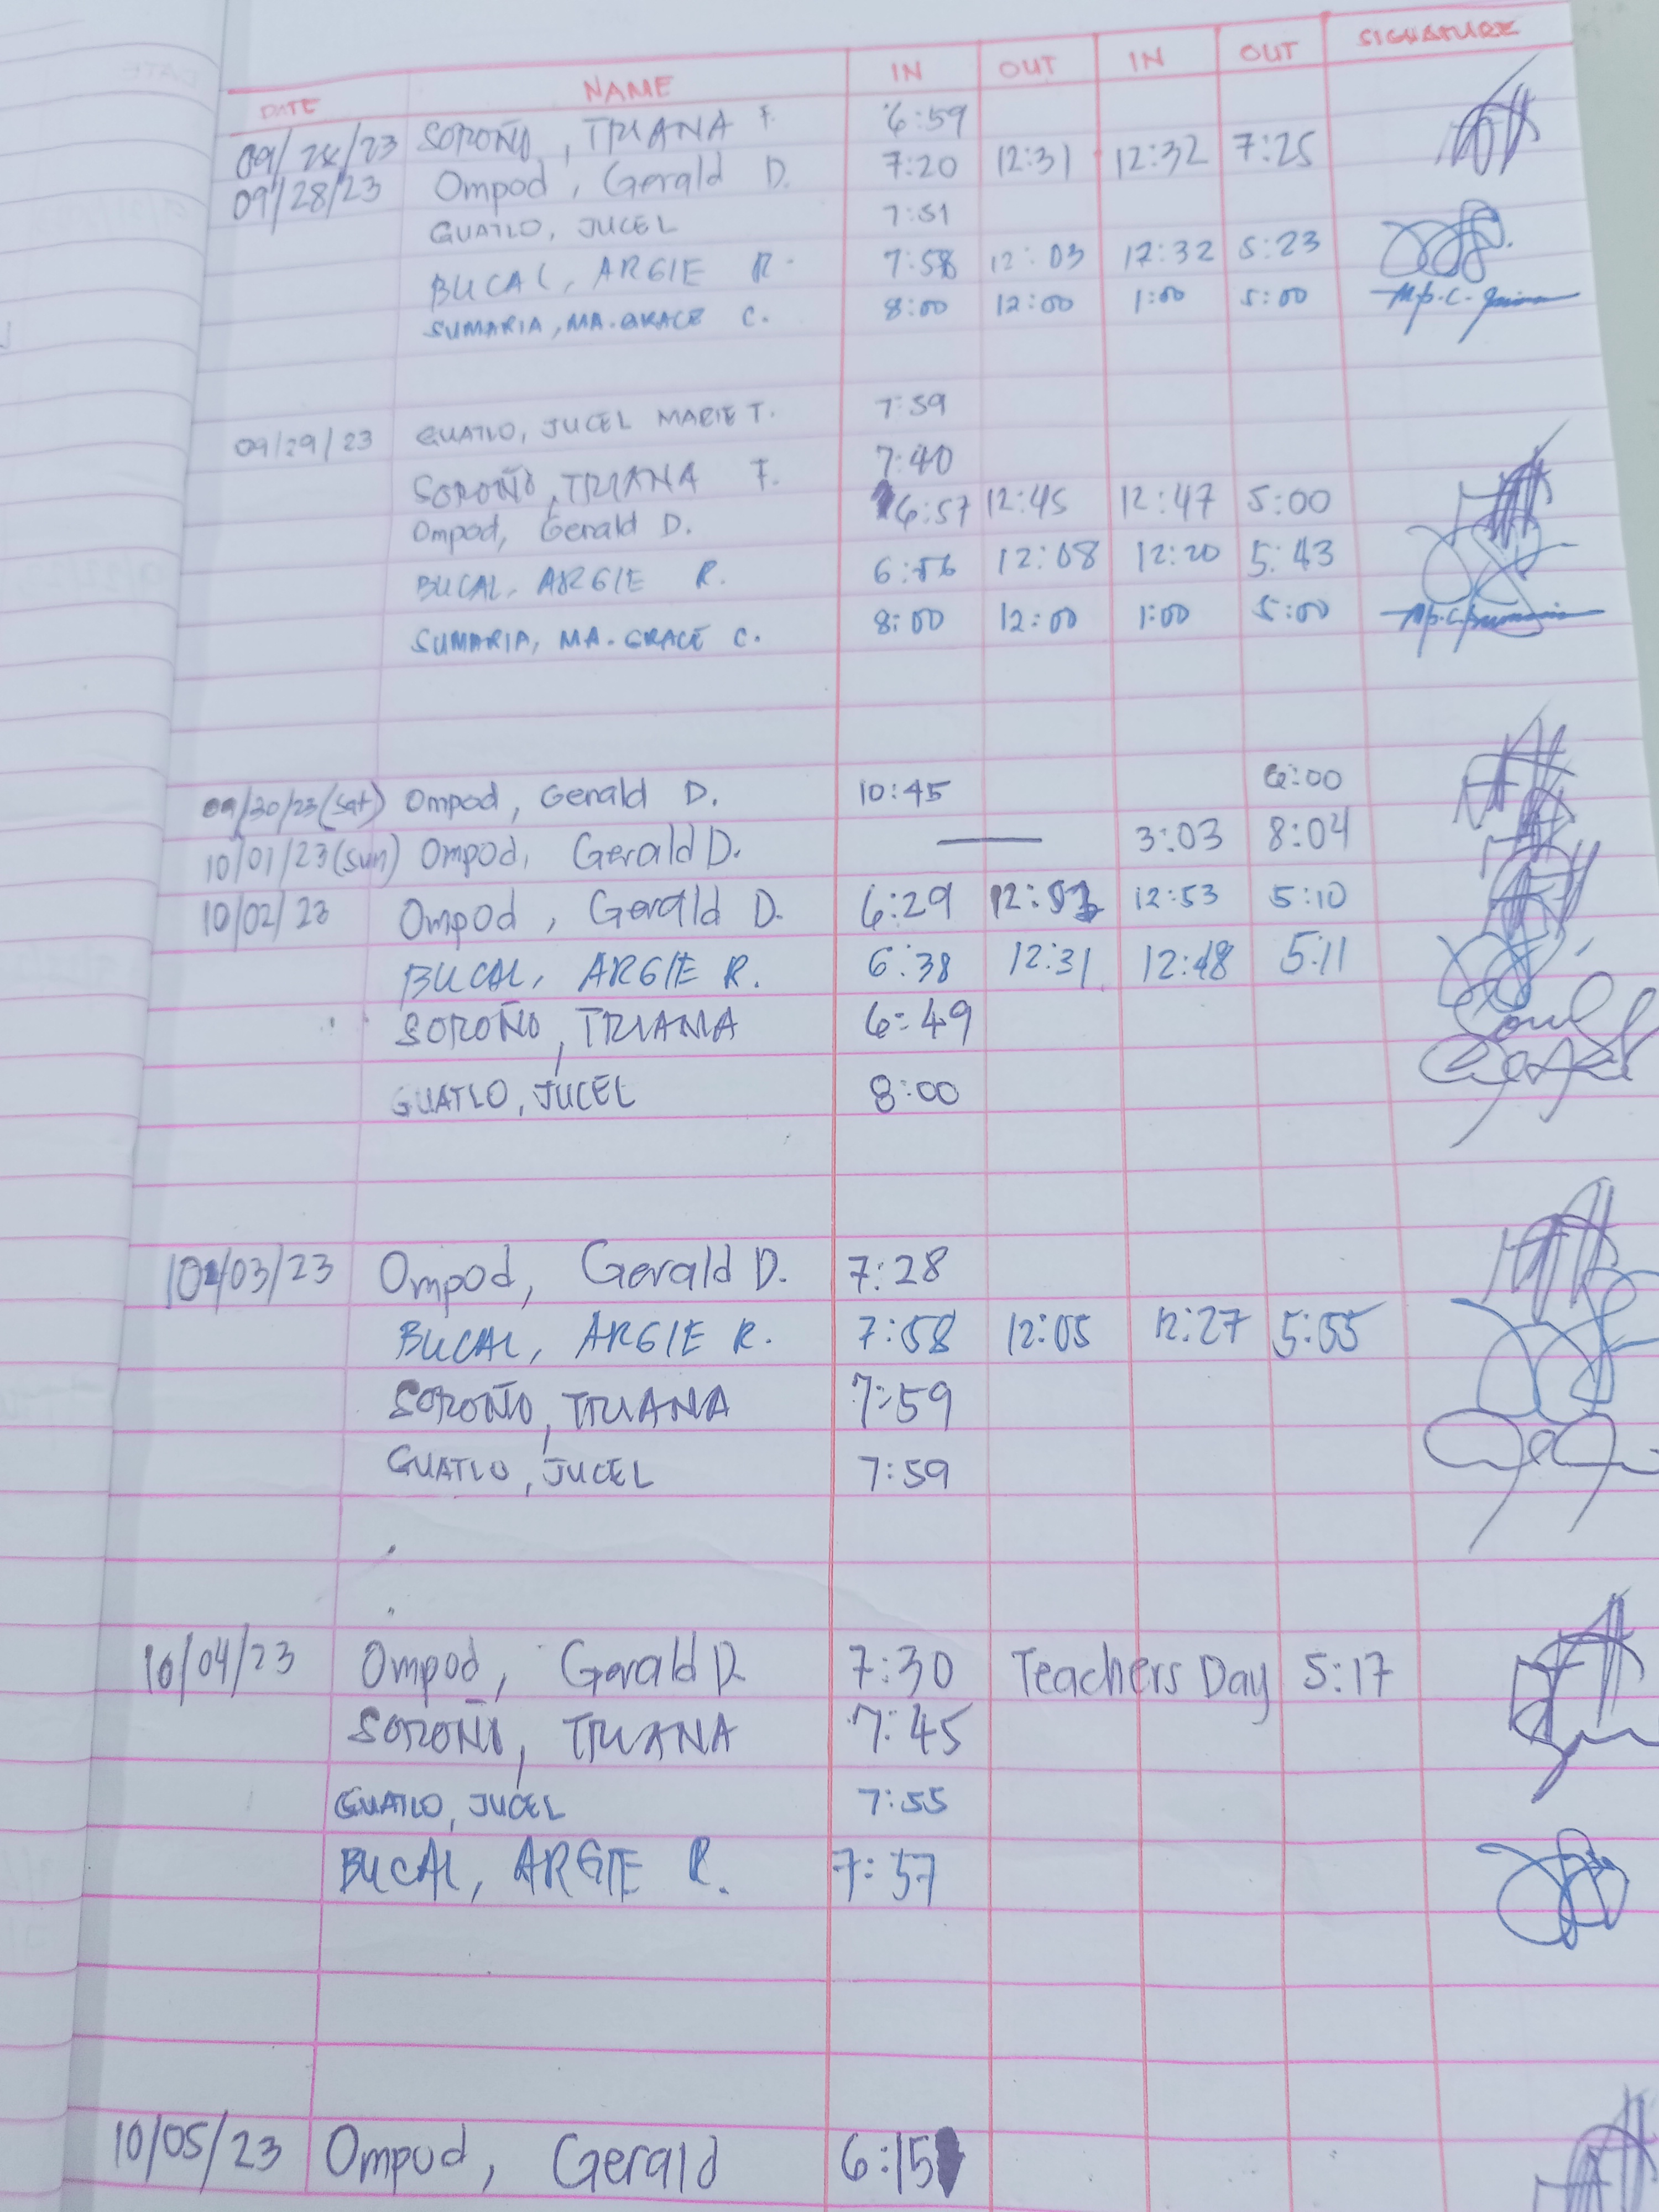 DATE NAME IN OUT IN OUT SIGNATURE
09/28/23 SOROÑO, TRIANA F. 6:59
09/28/23 Ompod, Gerald D. 7:20 12:31 12:32 7:25
GUATLO, JUCEL 7:51
BUCAL, ARGIE R. 7:58 12:03 12:32 5:23
SUMARIA, MA. GRACE C. 8:00 12:00 1:00 5:00
09/29/23 GUATLO, JUCEL MARIE T. 7:59
SOROÑO, TRIANA F. 7:40
Ompod, Gerald D. 6:57 12:45 12:47 5:00
BUCAL, ARGIE R. 6:56 12:08 12:20 5:43
SUMARIA, MA. GRACE C. 8:00 12:00 1:00 5:00
09/30/23 (Sat) Ompod, Gerald D. 10:45 6:00
10/01/23 (Sun) Ompod, Gerald D. — 3:03 8:04
10/02/23 Ompod, Gerald D. 6:29 12:53 5:10
BUCAL, ARGIE R. 6:38 12:31 12:48 5:11
SOROÑO, TRIANA 6:49
GUATLO, JUCEL 8:00
10/03/23 Ompod, Gerald D. 7:28
BUCAL, ARGIE R. 7:58 12:05 12:27 5:55
SOROÑO, TRIANA 7:59
GUATLO, JUCEL 7:59
10/04/23 Ompod, Gerald D. 7:30 Teachers Day 5:17
SOROÑO, TRIANA 7:45
GUATLO, JUCEL 7:55
BUCAL, ARGIE R. 7:57
10/05/23 Ompod, Gerald 6:15